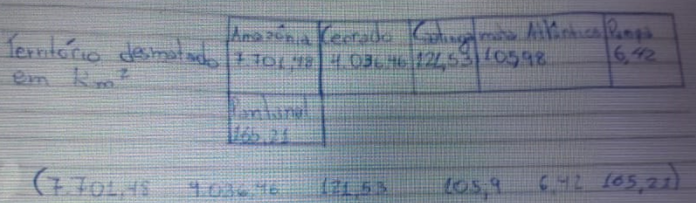 Território desmatado em Km²
Amazônia Cerrado Caatinga mata Atlântica Pampa
7.701,48 4.036,46 121,53 105,98 6,42
Pantanal
165,21
(7.701,48 4.036,46 121,53 105,9 6,42 165,21)